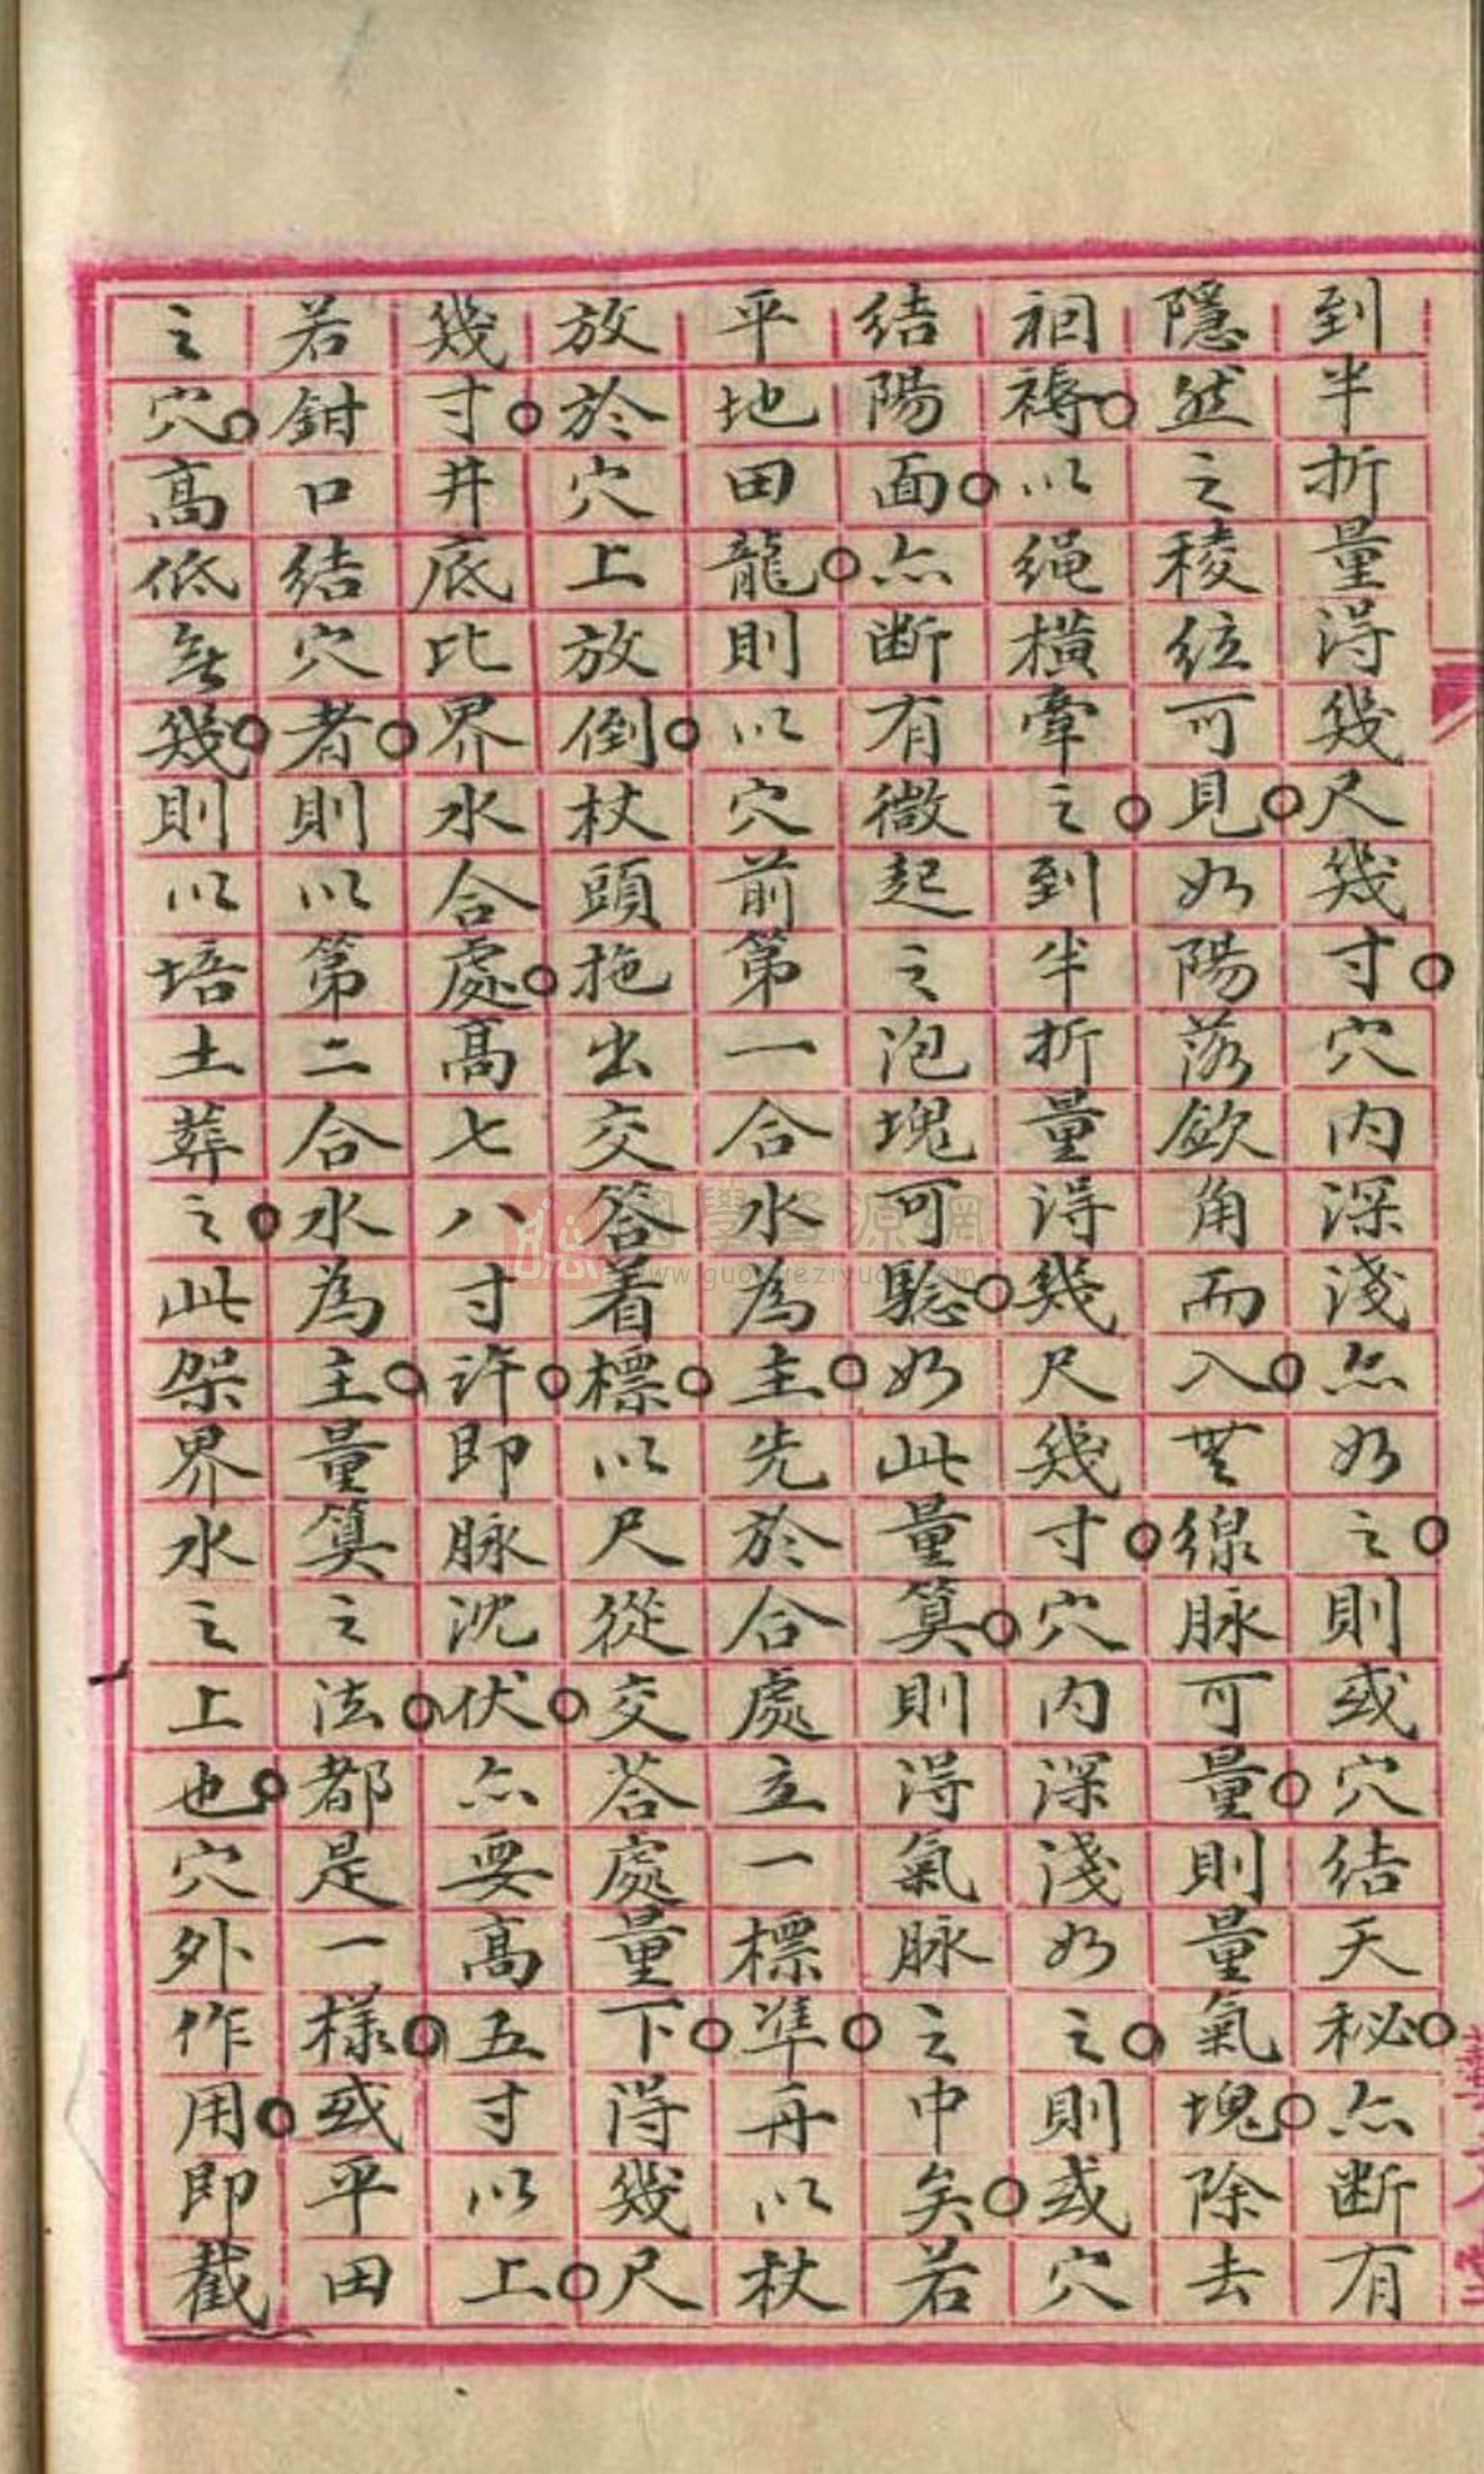 到半折量得幾尺幾寸。穴内深淺亦如之。則或穴結天秘。亦断有
隱然之稜可見。如陽落歛角而入。無線脉可量。則量氣塊。除去
裀褥。以绳横牽之。到半折量得幾尺幾寸。穴内深淺如之。則或穴
结陽面。亦断有微起之泡塊可騐。如此量算。則得氣脉之中矣。若
平地田龍。則以穴前第一合水為主。先於合處立一標準。再以杖
放於穴上放倒。杖頭拖出交答着標。以尺從交答處量下。得幾尺
幾寸。井底比界水合處。高七八寸許。即脉沈伏。亦要高五寸以上。
若鉗口結穴者。則以第二合水為主。量算之法。都是一樣。或平田
之穴。高低無幾。則以培土葬之。此架界水之上也。穴外作用。即截